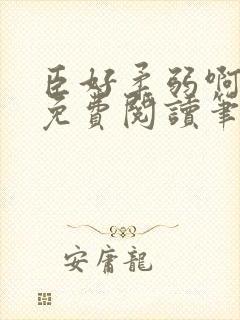 臣好柔弱啊
免費閱讀筆
安庸龍